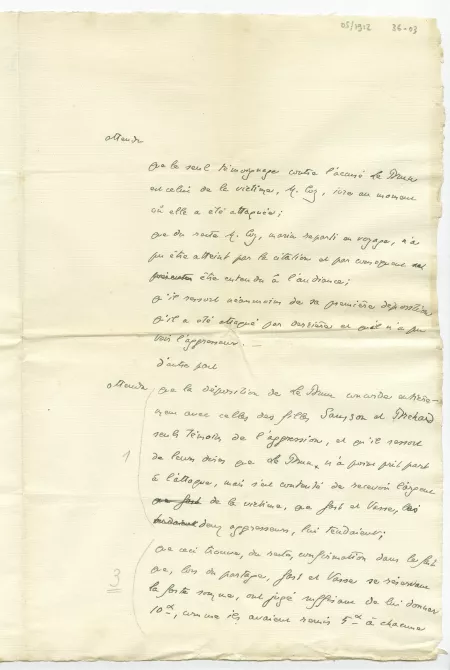 05/1912 34-03
attendu
que le seul témoignage contre l'accusé Le Brun
est celui de la victime, M. Coz, ivre au moment
où elle a été attaquée;
que du reste M. Coz, marin reparti en voyage, n'a
pu être atteint par la citation et par conséquent
être entendu à l'audience;
qu'il ressort néanmoins de sa première déposition
qu'il a été attaqué par derrière et qu'il n'a pu
voir l'agresseur. —
d'autre part
attendu que la déposition de Le Brun concorde entière-
ment avec celles des filles Samson et
seuls témoins de l'agression, et qu'il ressort
1 de leurs dires que Le Brun n'a point pris part
à l'attaque, mais s'est contenté de recevoir l'argent
que fort de la victime, que fort et Vasse, les
deux agresseurs, lui tendaient;
que ceci trouve, du reste, confirmation dans le fait
3 que, lors du partage, fort et Vasse se réservant
la forte somme, ont jugé suffisant de lui donner
10 , comme ils avaient remis 5 à chacune